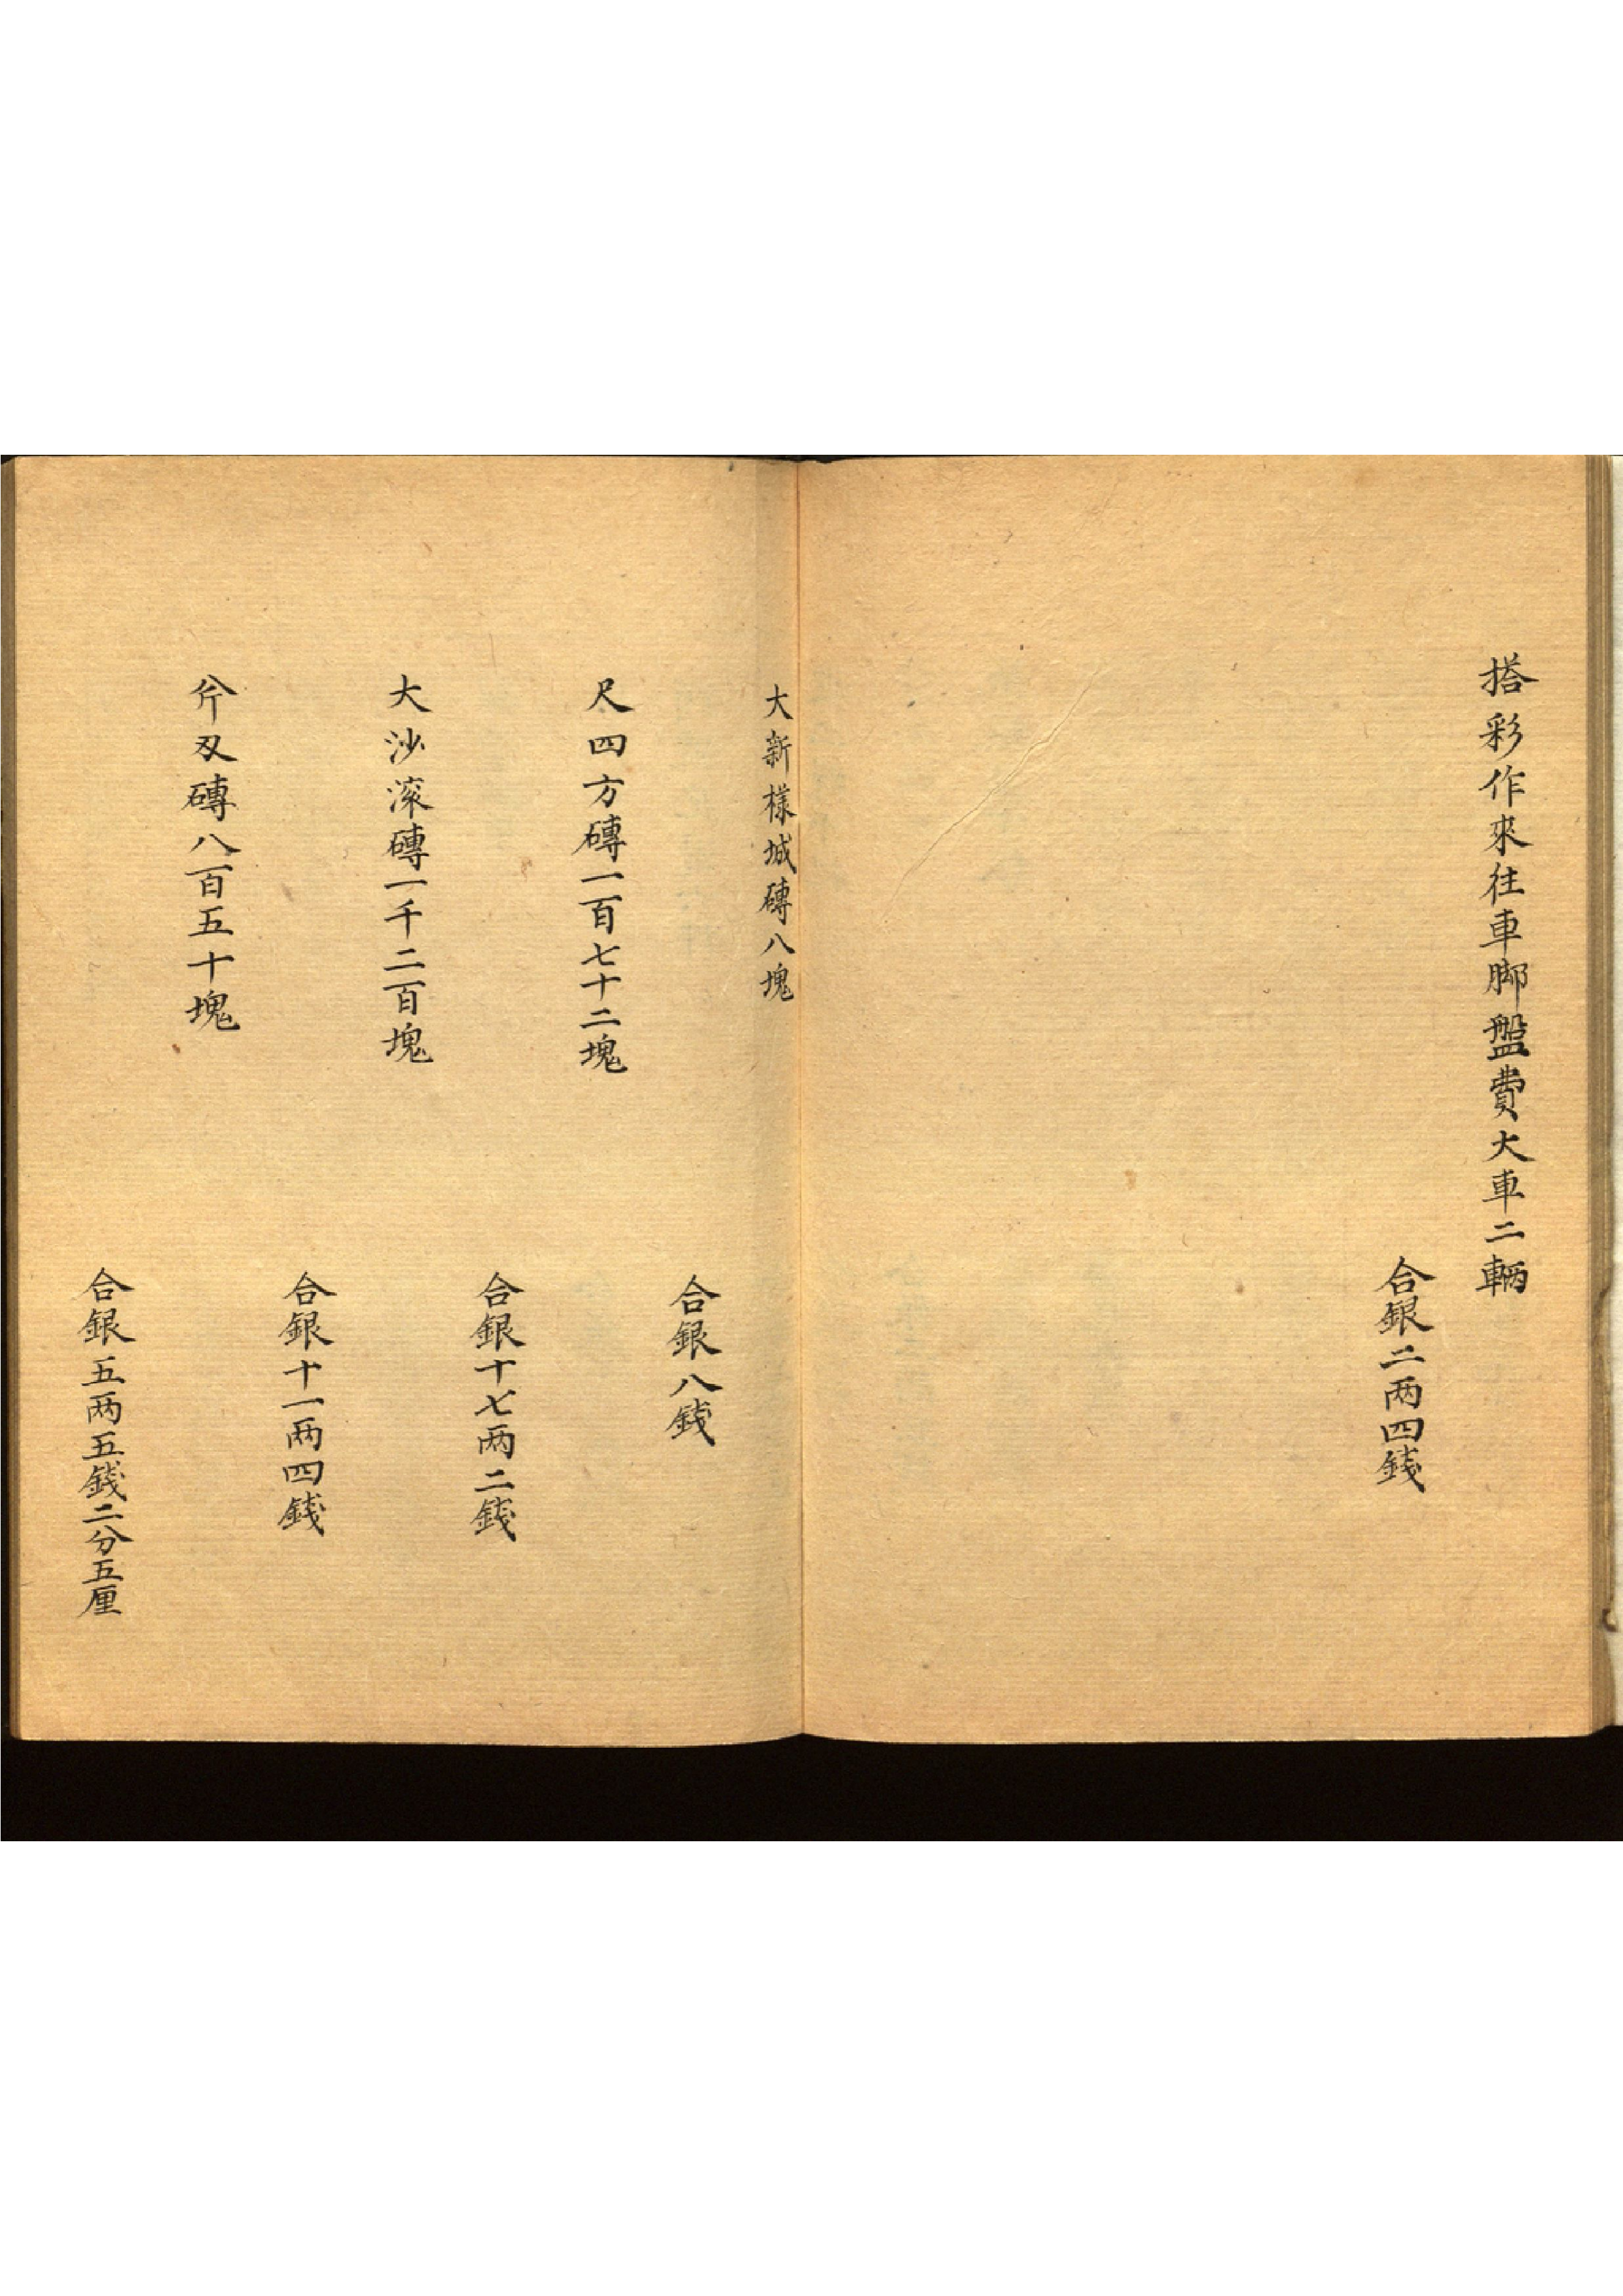 搭彩作來往車脚盤費大車二輛
合銀二两四錢
大新樣城磚八塊
合銀八錢
尺四方磚一百七十二塊
合銀十七两二錢
大沙滚磚一千二百塊
合銀十一两四錢
斧刄磚八百五十塊
合銀五两五錢二分五厘